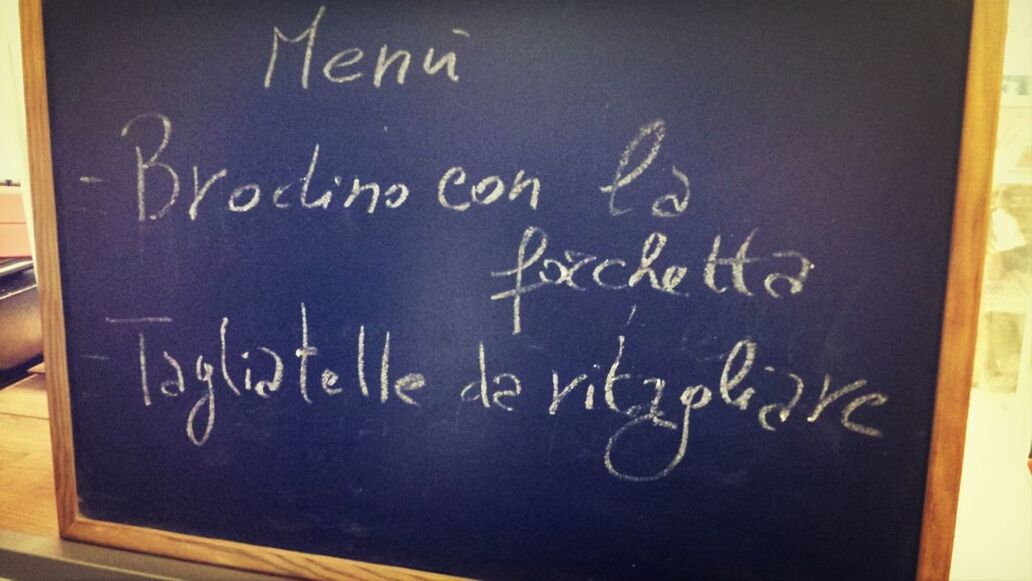 Menù
- Brodino con la
forchetta
- Tagliatelle da ritagliare